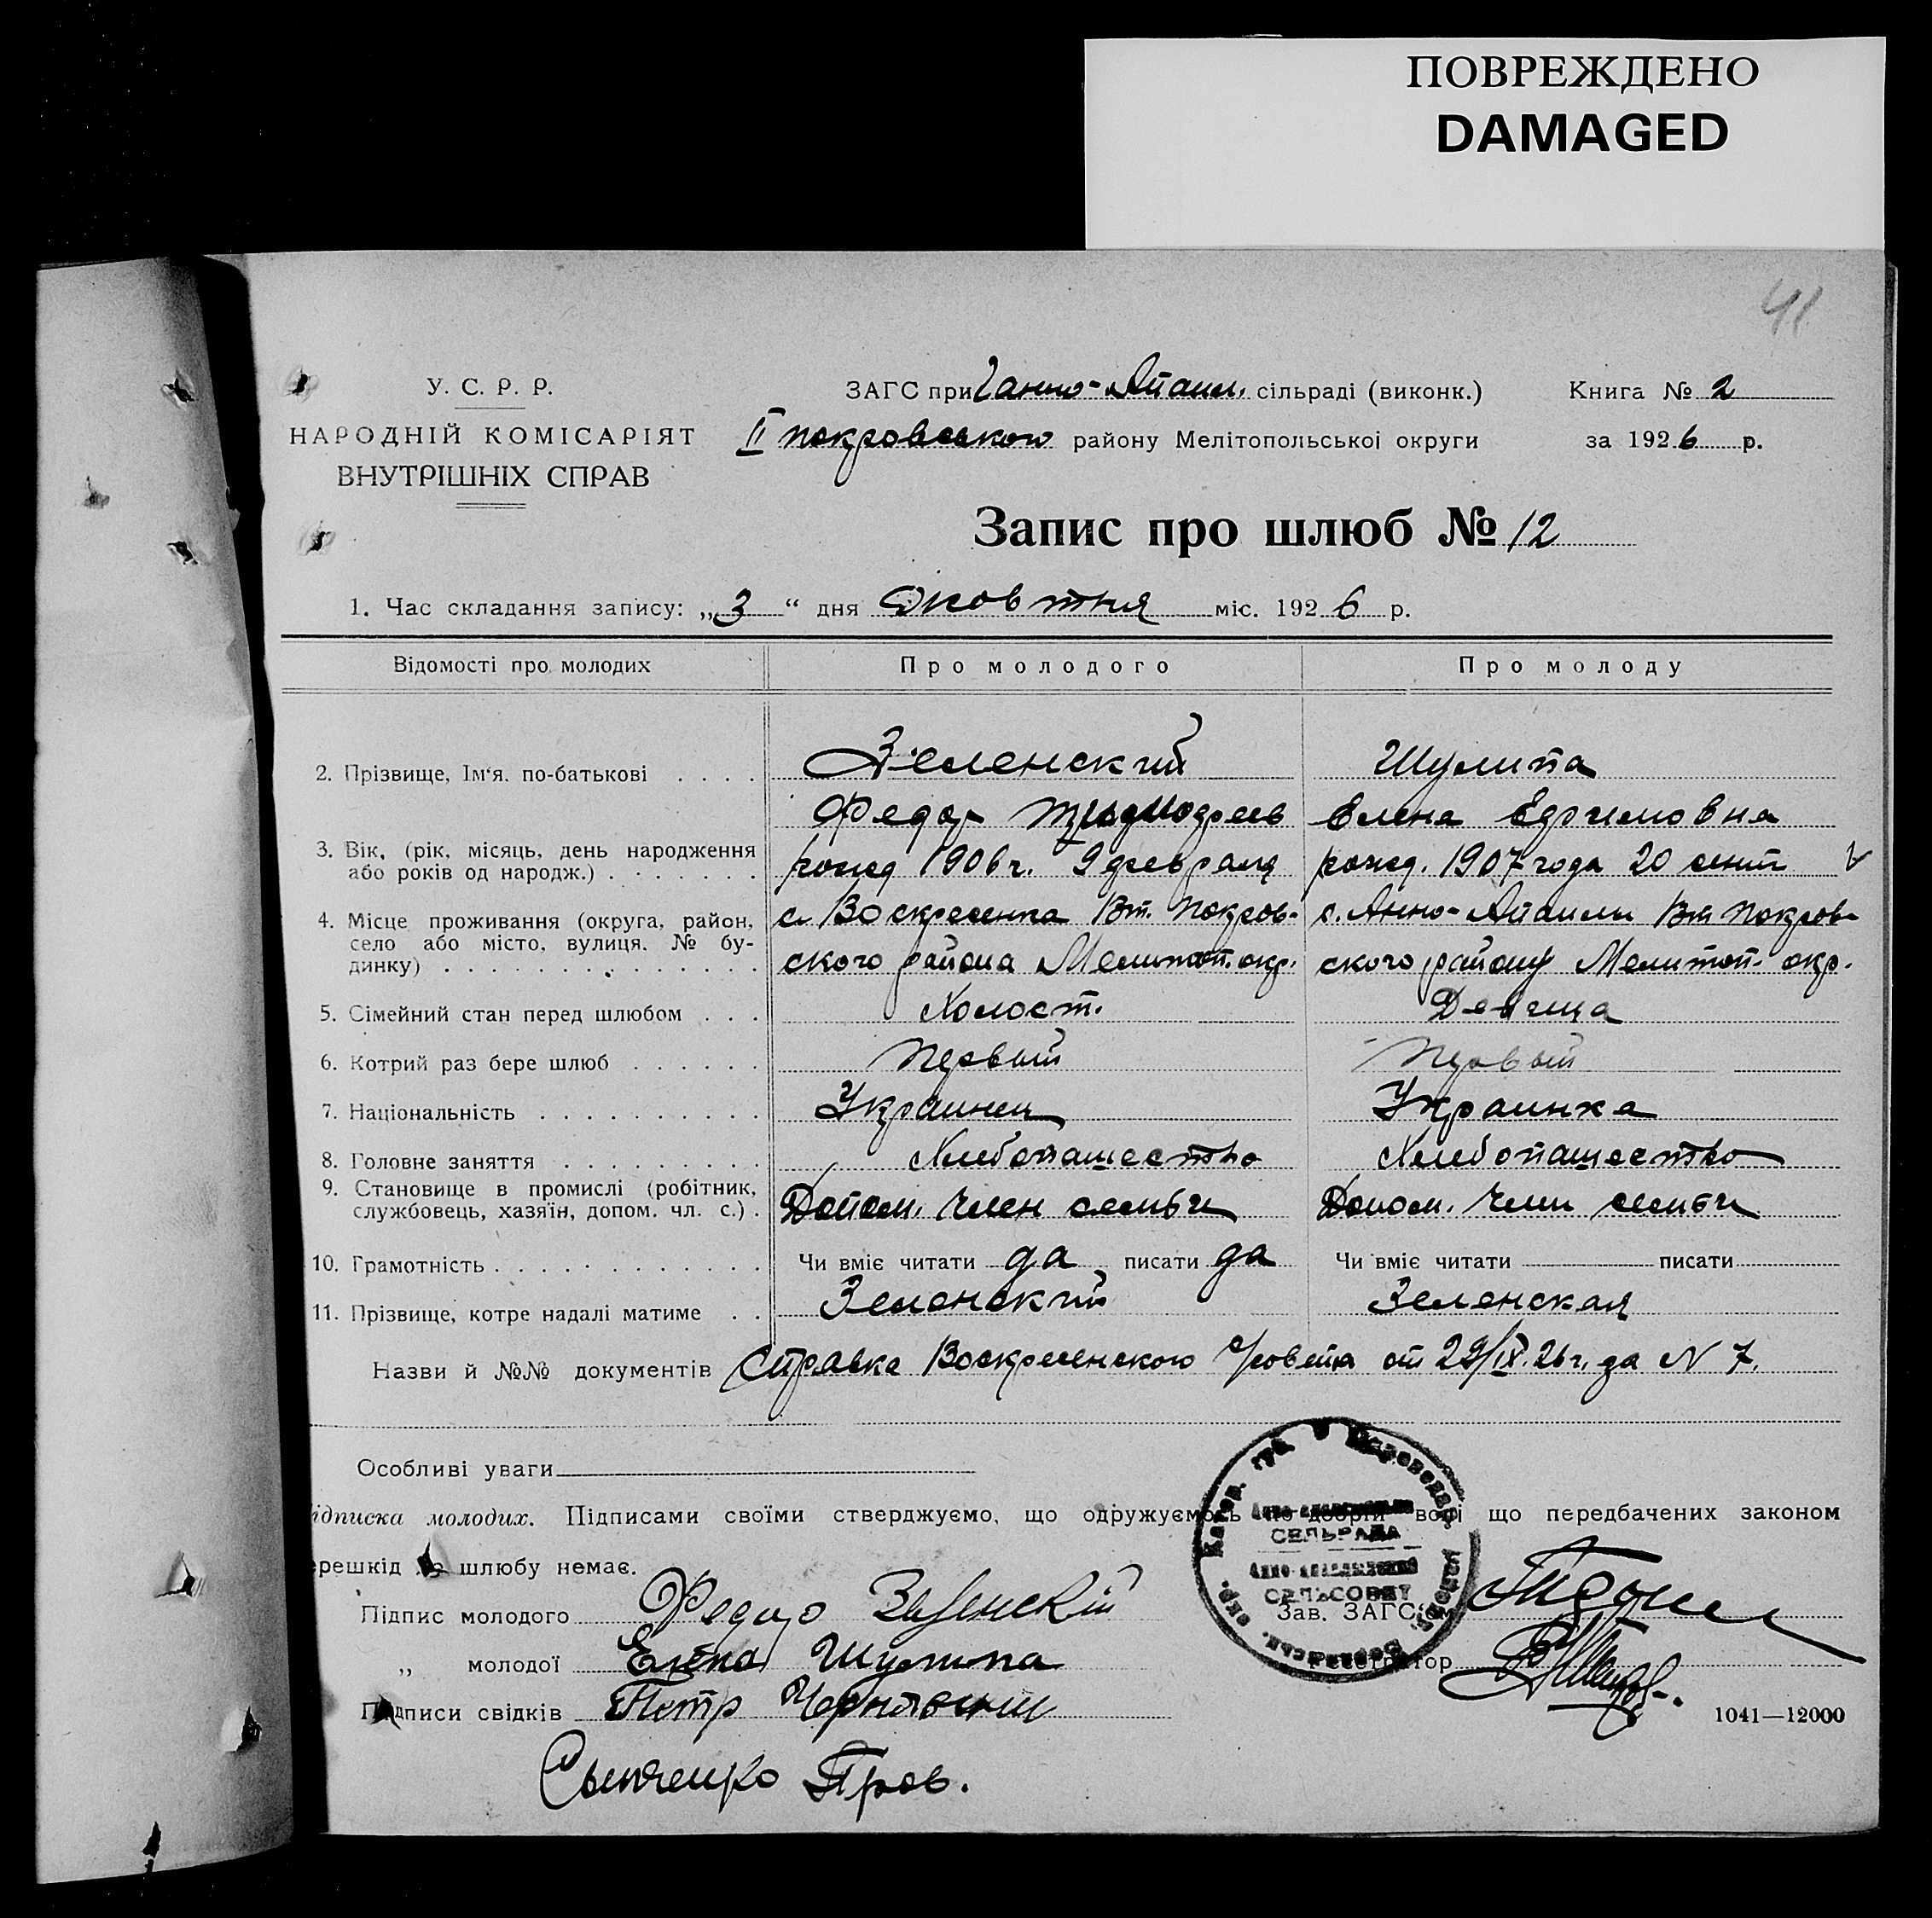 ПОВРЕЖДЕНО
DAMAGED
41
У. С. Р. Р.
НАРОДНІЙ КОМІСАРІЯТ
ВНУТРІШНІХ СПРАВ
ЗАГС при Ганно-Опанл. сільраді (виконк.)
II Покровського району Мелітопольської округи
Книга № 2
за 1926 р.
Запис про шлюб № 12
1. Час складання запису: „3“ дня Жовтня міс. 1926 р.
Відомості про молодих Про молодого Про молоду
2. Прізвище, Ім‘я. по-батькові . . . . Зеленский Шулипа
Федор Елена Ефимовна
3. Вік, (рік, місяць, день народження
або років од народж.) . . . . . . . рожд 1906 г. 9 февраля рожд. 1907 года 20 сент
4. Місце проживання (округа, район,
село або місто, вулиця. № бу-
динку) . . . . . . . . . . . . . .
с Воскресенка Вт. Покров-
ского района Мелитоп. окр.
с. Анно- Вт Покров-
ского району Мелитоп. окр.
5. Сімейний стан перед шлюбом . . . Холост. Девица
6. Котрий раз бере шлюб . . . . . . Первый Первый
7. Національність . . . . . . . . . . Украинец Украинка
8. Головне заняття . . . . . . . . . Хлебопашество Хлебопашество
9. Становище в промислі (робітник,
службовець, хазяїн, допом. чл. с.) . Допом. член семьи Допом. член семьи
10. Грамотність . . . . . . . . . . . . Чи вміє читати да писати да Чи вміє читати писати
11. Прізвище, котре надалі матиме . . Зеленский Зеленская
Назви й №№ документів Справка Воскресенского С/совета от 29/IX.26 г. за N 7.
Особливі уваги
ідписка молодих. Підписами своїми стверджуємо, що одружуємось по добрій волі що передбачених законом
ерешкід до шлюбу немає.
СЕЛЬРАДА
СЕЛЬСОВЕТ
Підпис молодого Федир Зеленскій
Зав. ЗАГС‘ом
„ молодої Елена Шулипа
Реєстратор
Підписи свідків Петр
1041—12000
Пров.